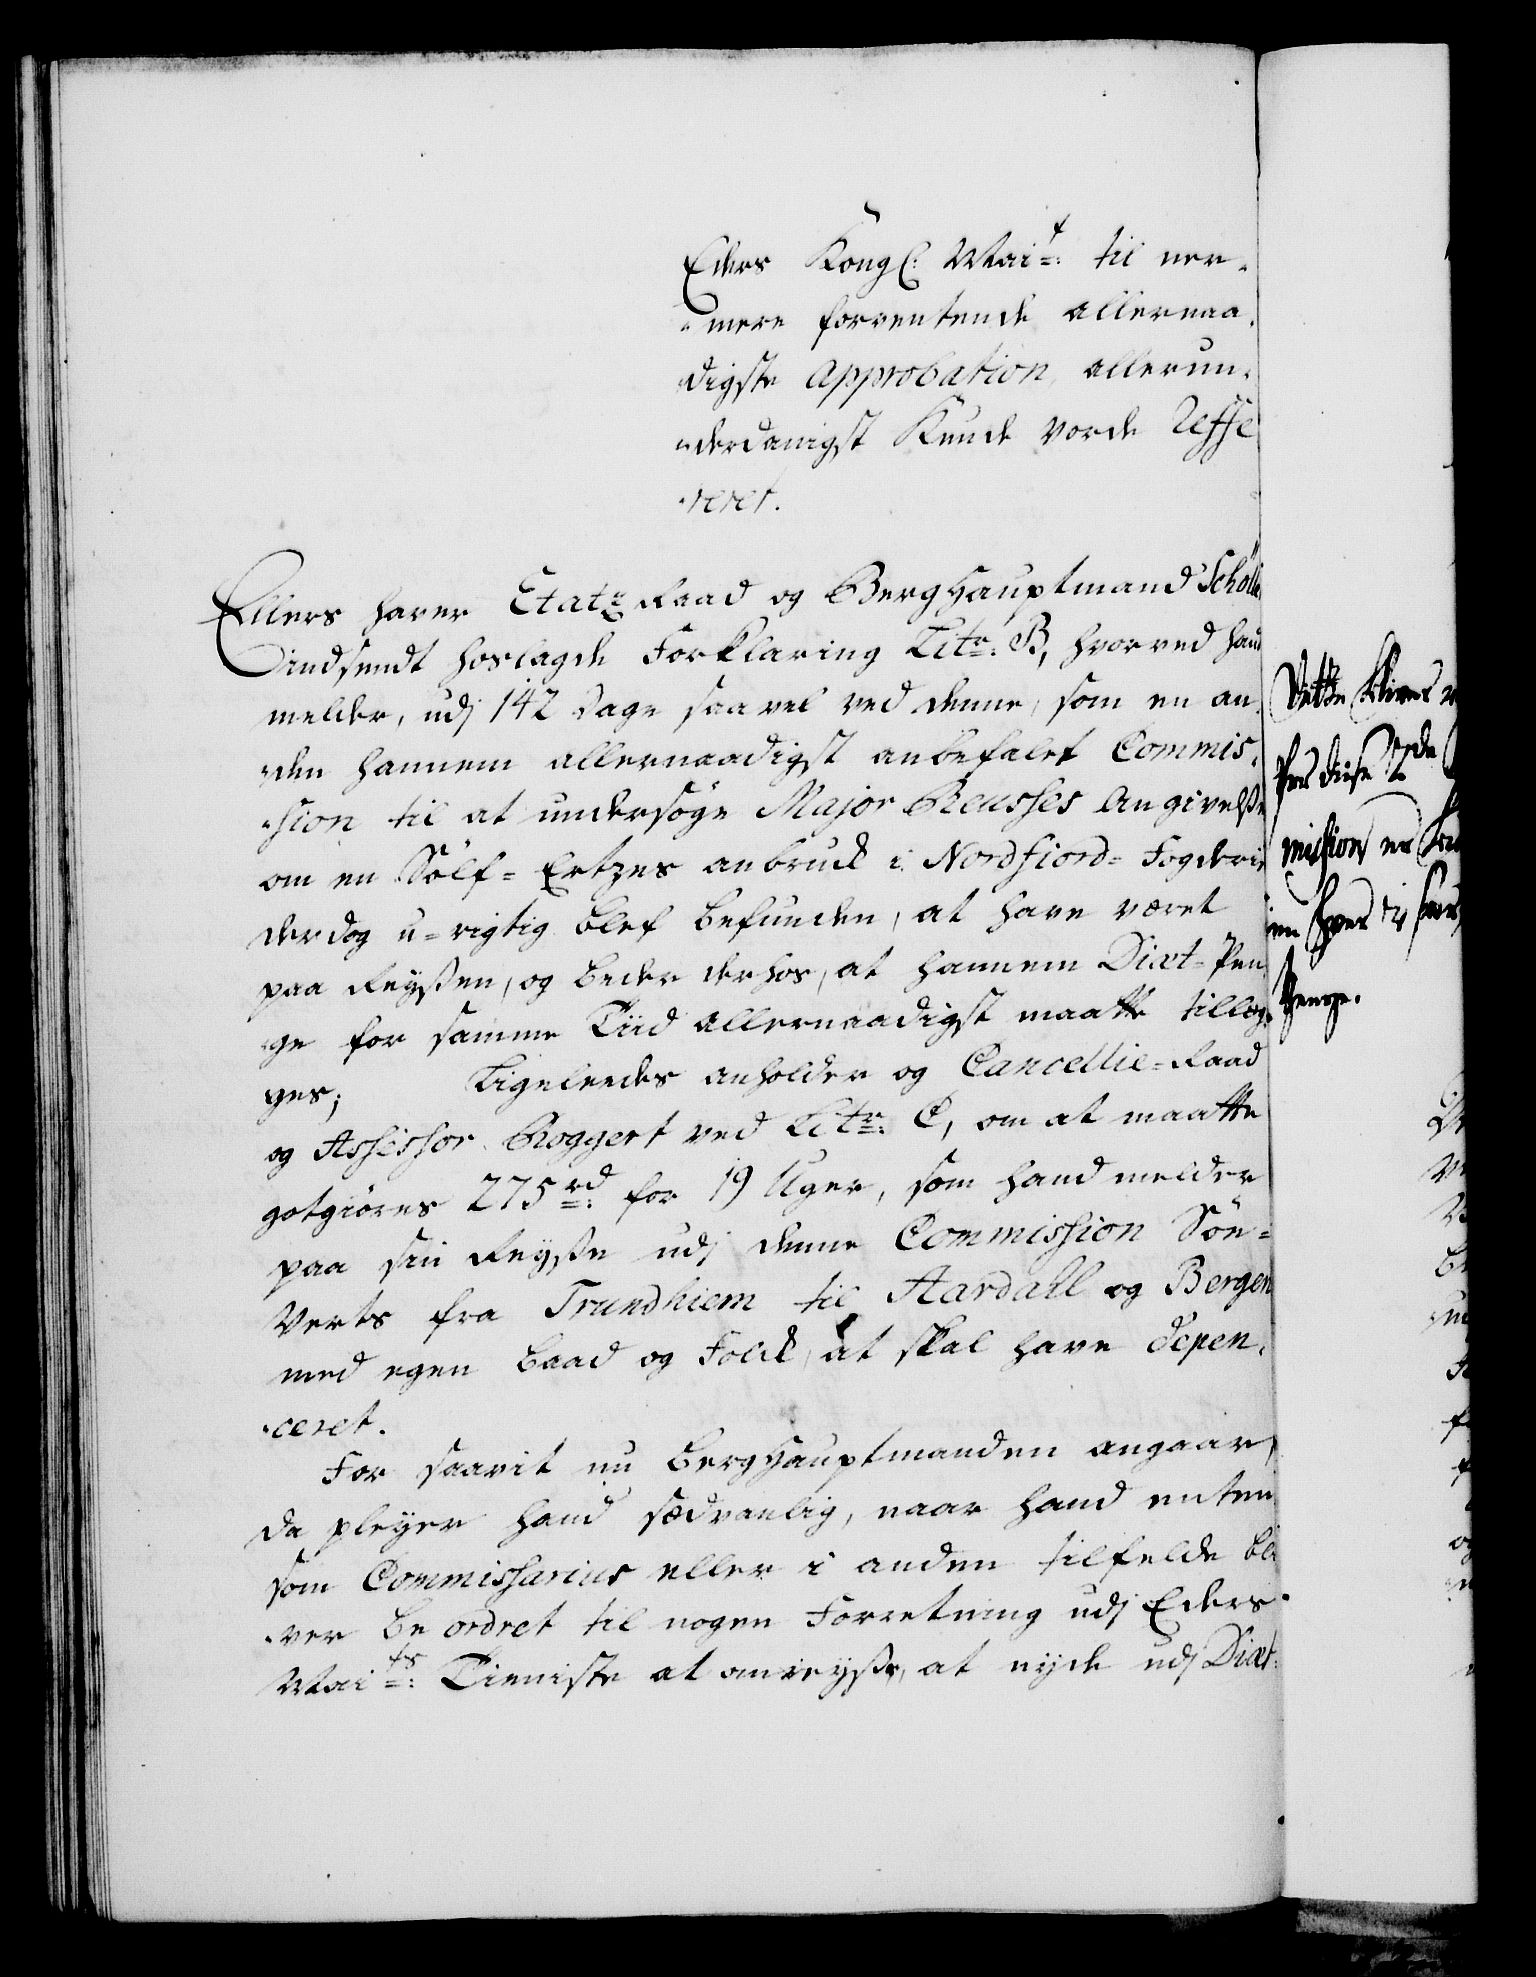 Eders Kongl: Mai:t til ner-
-mere forventende allernaa-
digste Approbation, allerun-
-derdanigst Kunde vorde Reffe
-reret.
Ellers haver Etatz Raad og Berg Hauptmand Schöll
indsendt hoslagde Forklaring Litr: B, hvorved hand
melder, udj 142 dage saavel ved denne, som en an-
-den hannem allernaadigst anbefalet Commis-
-sion til at undersöge Major Reusses Angivelsse
om en Sölf-Ertzes anbrud i Nordfiord-Fogderi
der dog u-rigtig blef befunden, at have været
paa Reyssen, og beder derhos, at hannem Diæt-Pen
-ge for samme Tiid allernaadigst maatte tillæg-
ges; Ligeleedes anholder og Cancellie-Raad
og Assessor Roggert ved Litr: C, om at maatte
gotgiöres 275 rd: for 19 Uger, som hand melder
paa sin Reysse udj denne Commission Söe-
Verts fra Trundhiem til Aardall og Bergen
med egen Baad og Folck, at skal have depen-
-ceret.
For saavit nu Berg Hauptmanden angaar,
da pleyer hand sædvanlig, naar hand enten
som Commissarius eller i anden tilfelde bli
-ver be ordret til nogen Forretning udj Eders
Mai:ts Tieniste at omreysse, at nyde udj Diæt-
Dette bliver
For disse 2de
mission er
en hver
Penge.